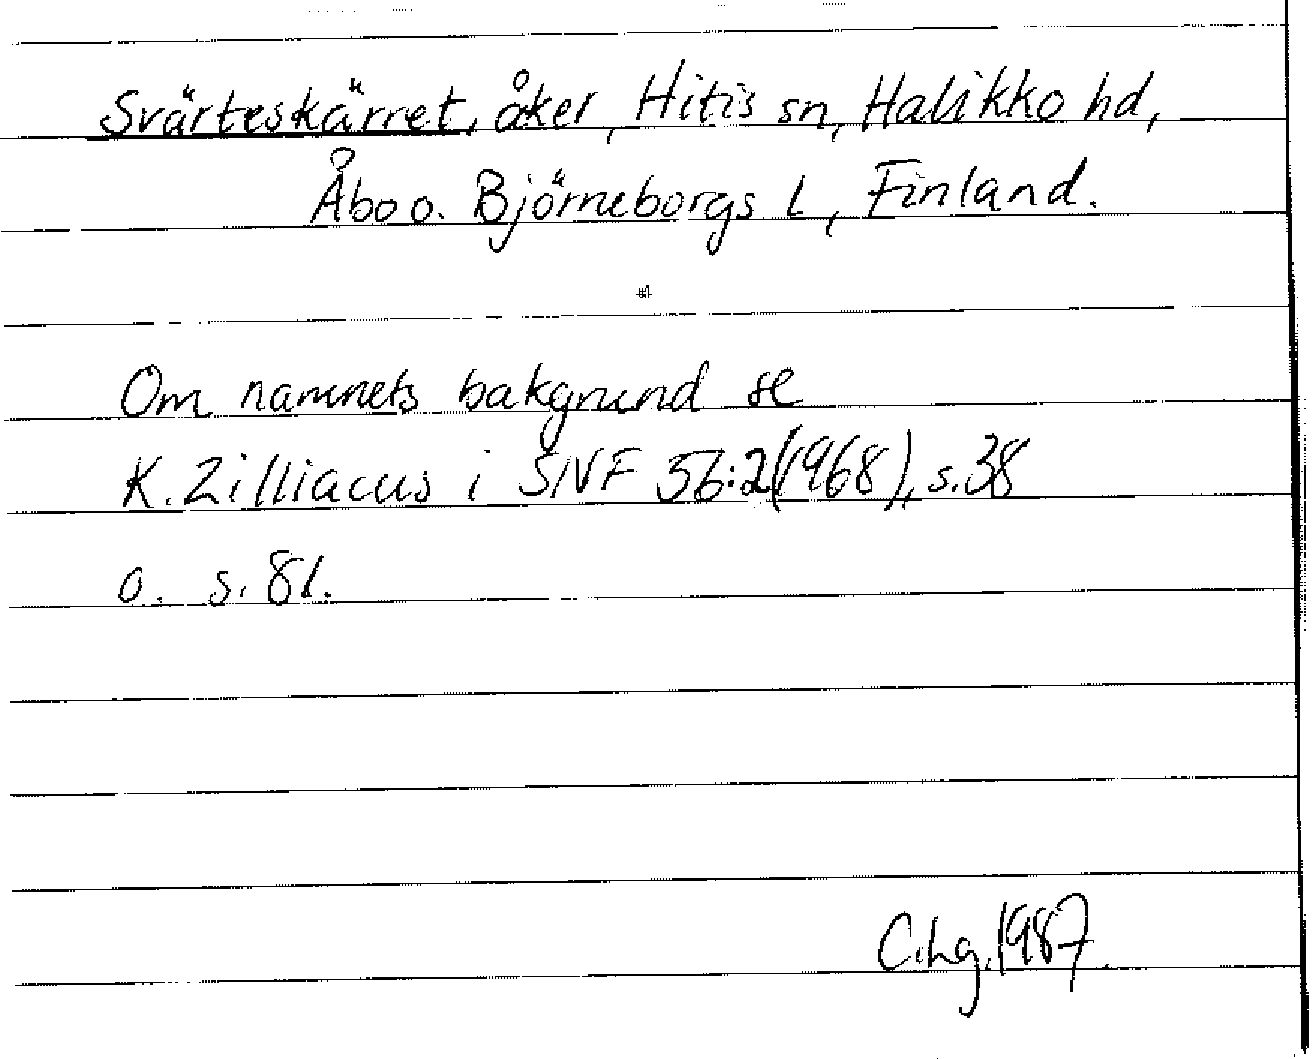 Svärteskärret, åker, Hitis sn, Halikko hd,
Åbo o. Björneborgs l, Finland.
Om namnets bakgrund se
K. Zilliacus i SNF 56:2(1968), s. 38
o. s. 81.
C.Lg. 1987.